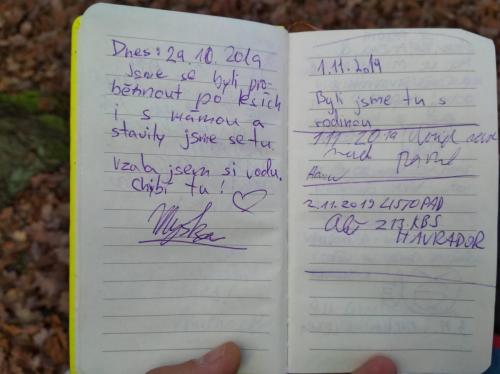 Dnes: 29.10.2019
jsme se byli pro-
běhnout po lesích
i s mámou a
stavily jsme se tu.
vzala jsem si vodu.
chybí tu!
1.11.2019
Byli jsme tu s
rodinou
1.11.2019
Pavel
2.11.2019 LISTOPAD
213.KBS
HAVRADOR